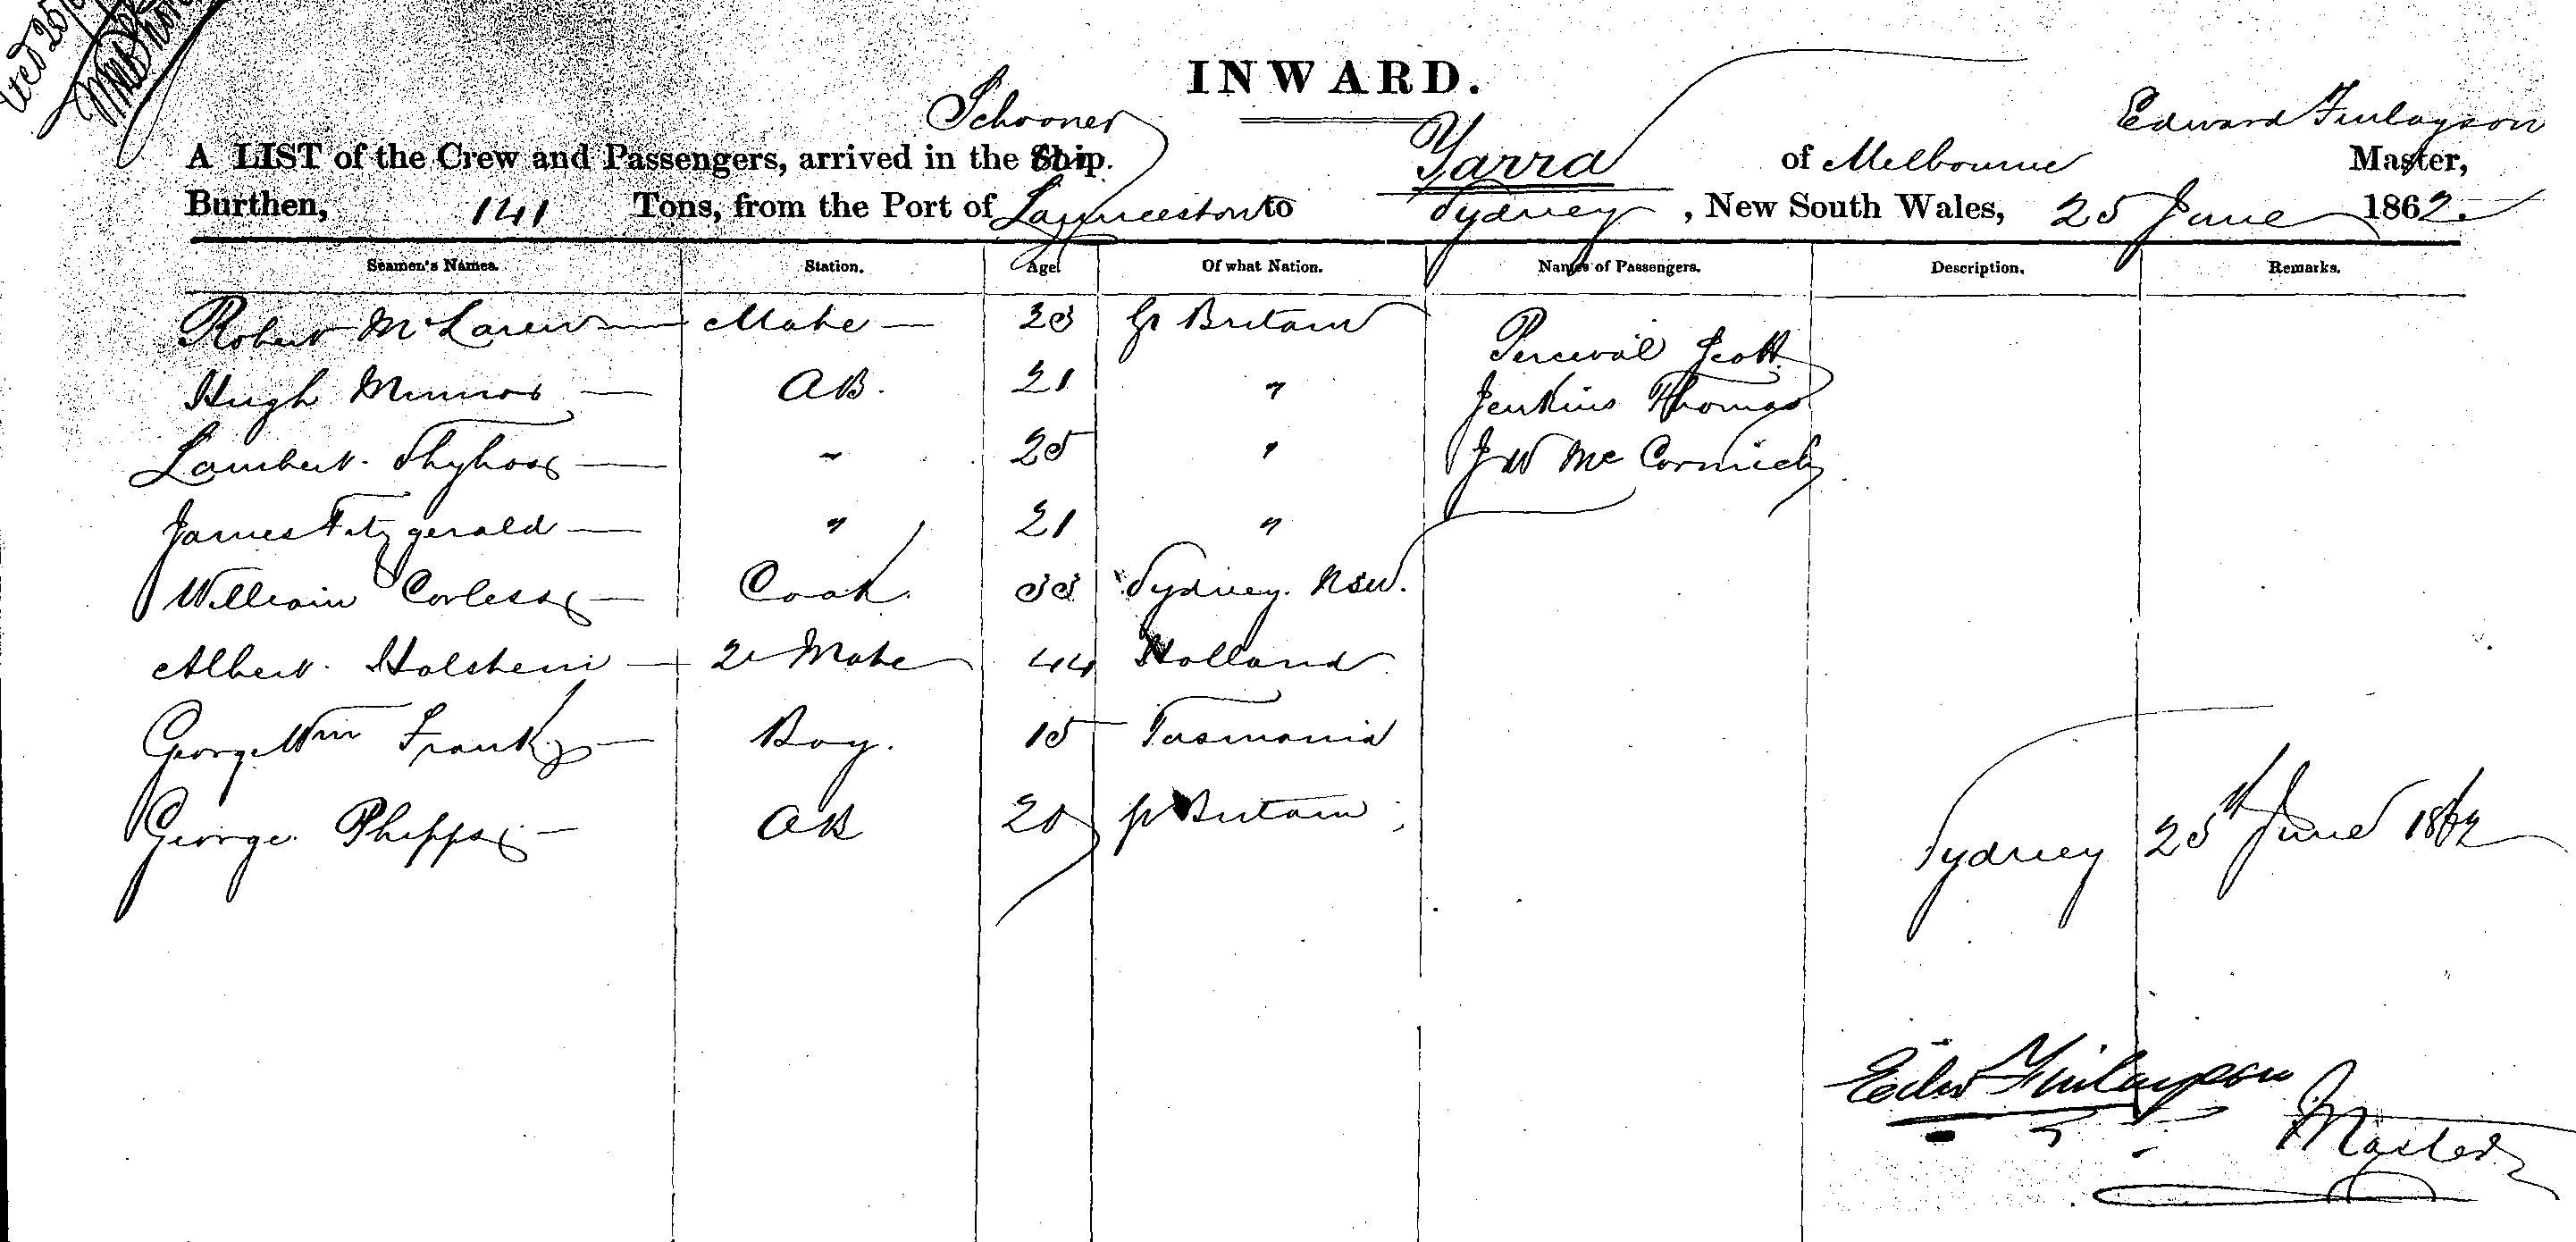 INWARD.
Schooner
Edward Finlayson
A LIST of the Crew and Passengers, arrived in the Ship. Yarra of Melbourne Master,
Burthen, 141 Tons, from the Port of Launceston to Sydney, New South Wales, 25 June 1862.
Seamen's Names. Station. Age. Of what Nation. Names of Passengers. Description. Remarks.
Robert McLaren — Mate — 23 Gt Britain Percival Scott
Hugh Munro — AB. 21 " Jenkins Thomas
Lambert — " 25 " JW McCormick
James Fitzgerald — " 21 "
William Corless — Cook. 33 Sydney. NSW.
Albert Holstein — 2 Mate 44 Holland
George Wm Franks — Boy. 15 Tasmania
George Phipps — AB 20 Gt Britain
Sydney 25th June 1862
Edw Finlayson
Master